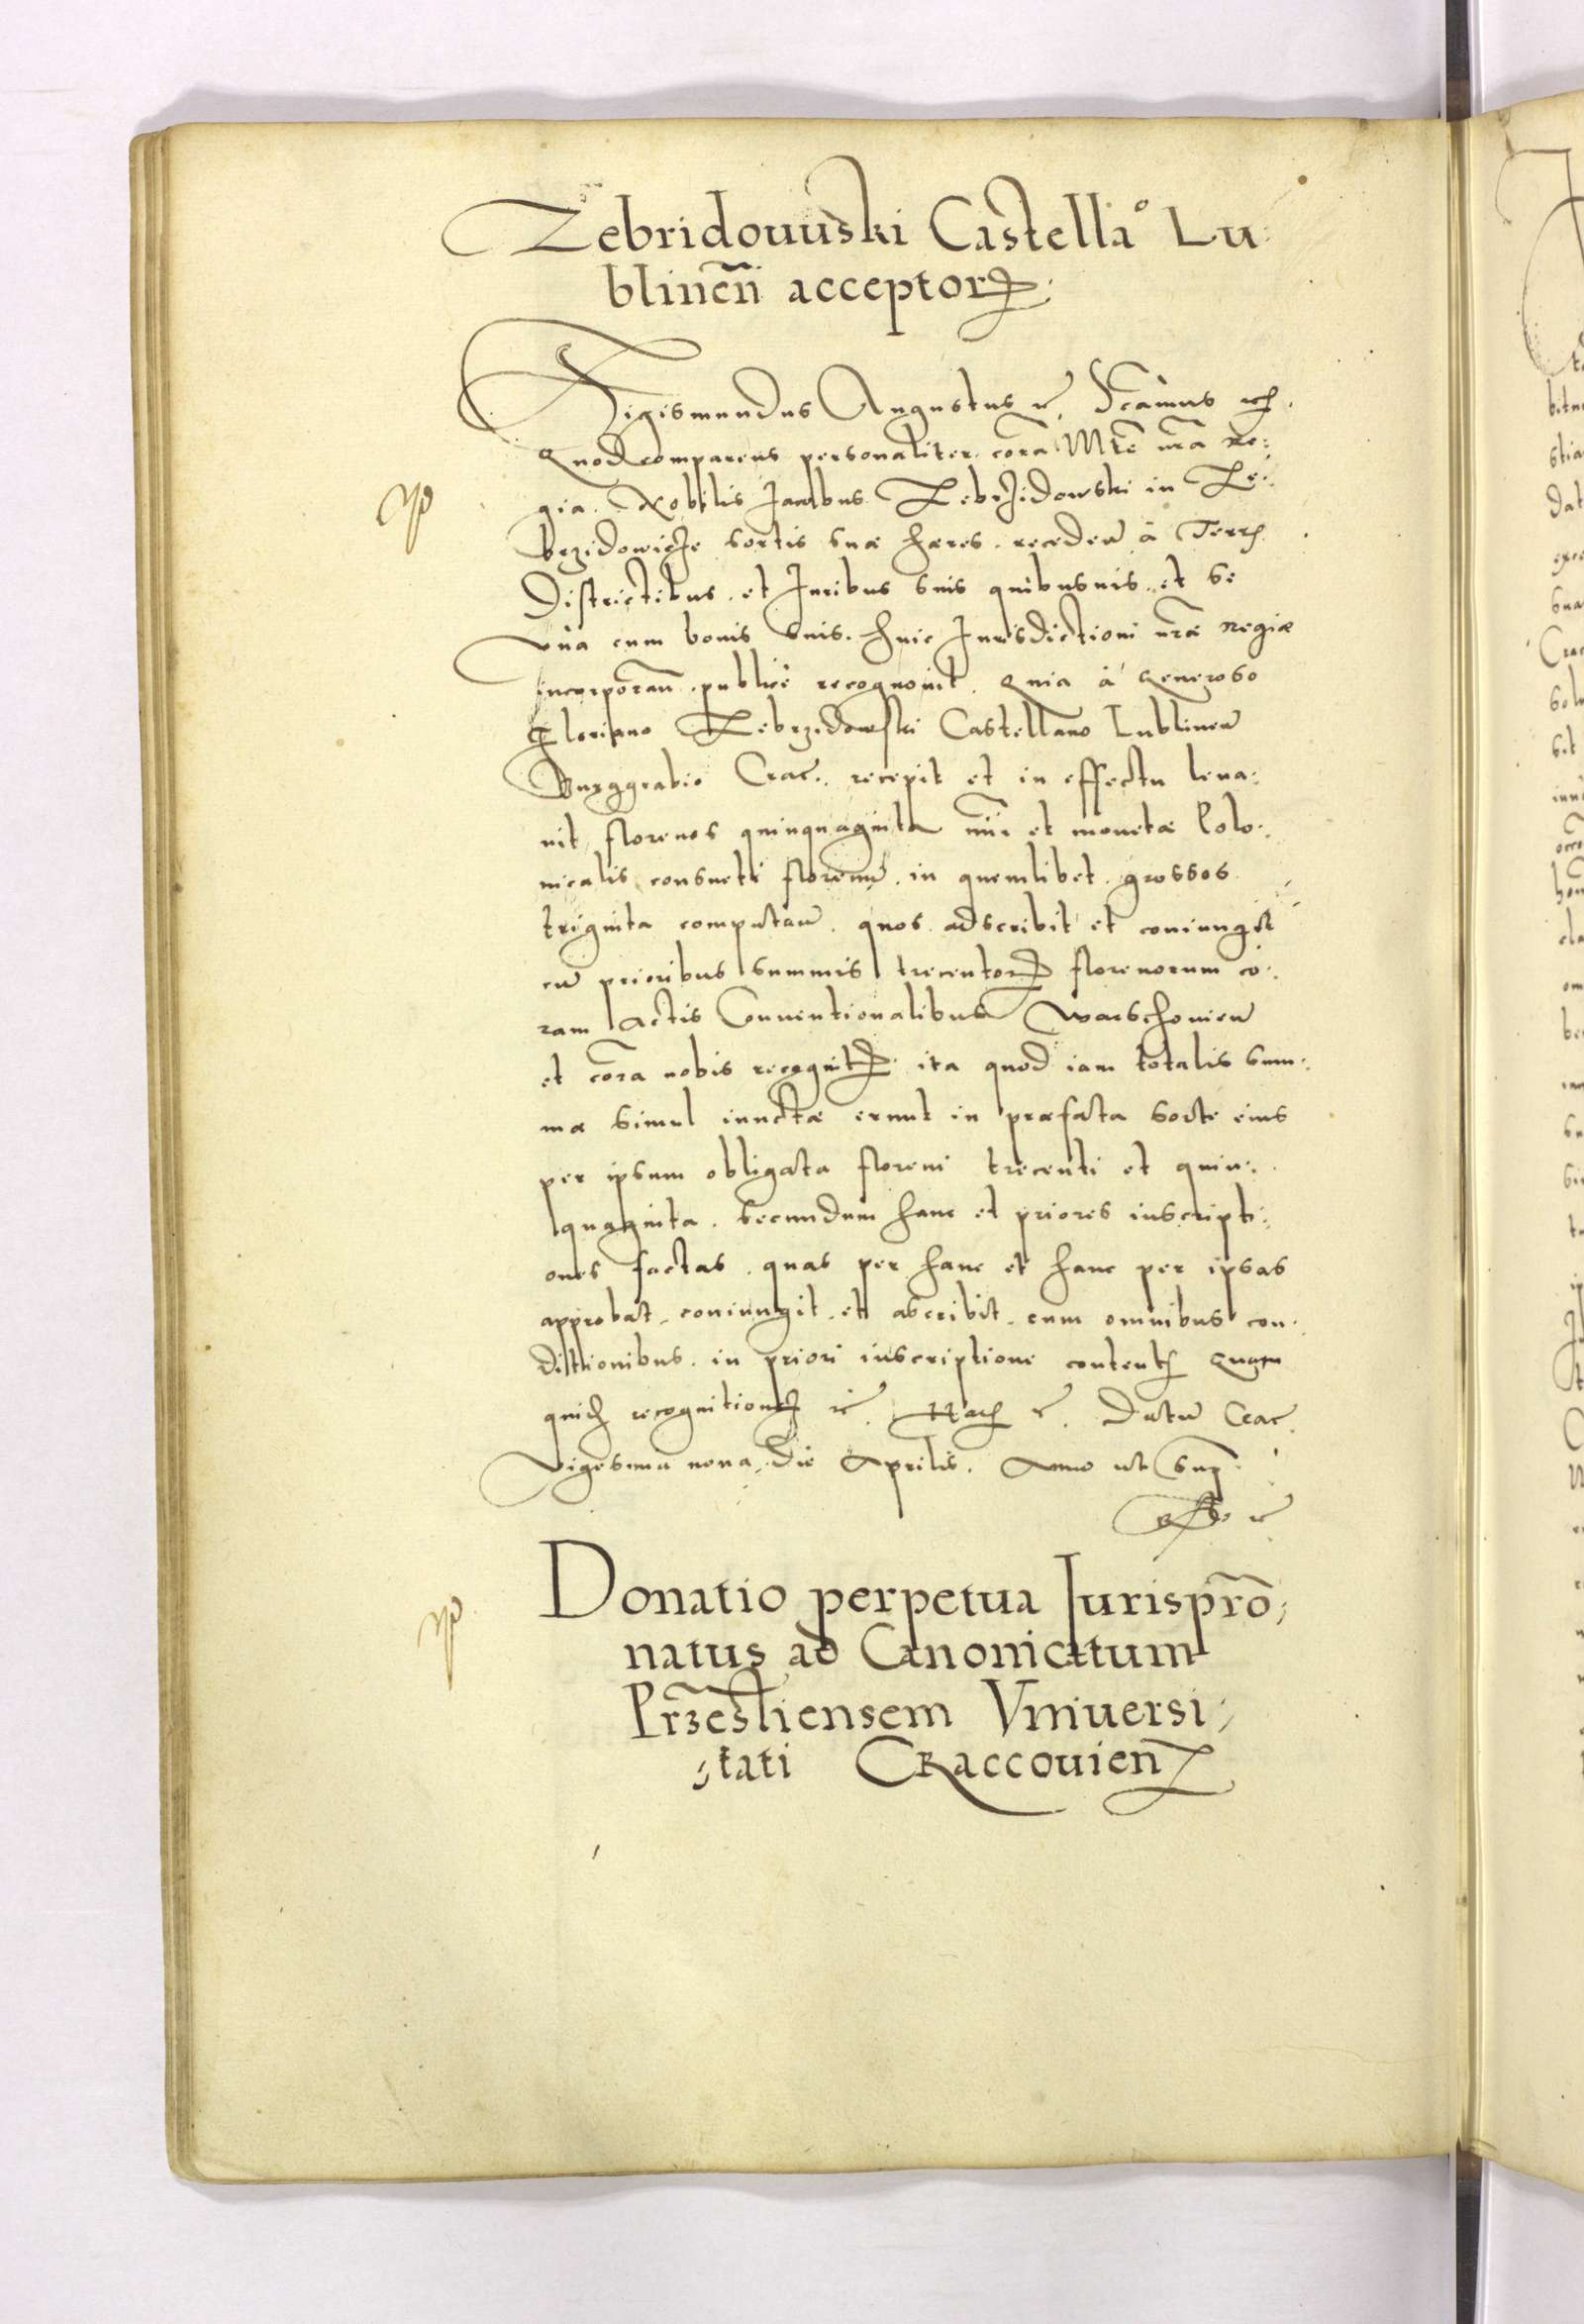 Zebridouuski Castellā° Lu:
blineñ acceptorꝝ:
Sigismundus Augustus rc̃, Sc̃amus rc̃.
Quod comparens personaliter corā Mtẽ nrã re:
gia. Nobilis Jacobus Zebrzidowski in Ze:
brzidowicze sortis suæ hæres. recedeñ à Terrs
Districtibus. et Juribus suis quibusuis. et se
vna cum bonis suis. huic Jurisdictioni nrãe Regiæ
incorporañ. publicè recognouit. Quia à Generoso
Floriano Zebrzidowski Castellano Lublineñ
Burggrabio Crac̃. recepit et in effectu leua:
uit florenos quinquaginta mĩi et monetæ Polo:
nicalis consueti florenũ. in quemlibet. grossos
triginta computañ. quos adscribit et coniungit
cũ prioribus summis trecentorꝝ florenorum co:
ram Actis Conuentionalibus Warschouieñ
et corā nobis recognitꝝ. ita quod iam totalis sum:
ma simul iunctæ erunt in præfata sorte eius
per ipsum obligata floreni trecenti et quin:
quaginta. secundum hanc et priores inscripti:
ones factas. quas per hanc et hanc per ipsas
approbat. coniungit. et ascribit. cum omnibus con:
ditionibus. in priori inscriptione contents Quam
quid recognitioneȝ rc̃. Hars rc̃. Datũ Crac.
Vigesima nona. die Aprilis. Anno ut sup̃.
Donatio perpetua Jurisprõ:
natus ad Canonicatum
Prz̃estiensem Vniuersi:
:tati CRaccouien